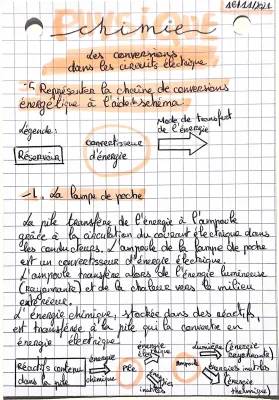 16/11/2021
chimie
Les conversions
dans les circuits électrique
Représenter la chaîne de conversions
énergétique à l'aide schéma:
Légende:
Réservoir
convertisseur
d'énergie
Mode de transfert
de l'énergie
1. La lampe de poche
La pile transfère de l'énergie à l'ampoule
grâce à la circulation du courant électrique dans
les conducteurs. L'ampoule de la lampe de poche
est un convertisseur d'énergie électrique.
L'ampoule transfère alors de l'énergie lumineuse
(rayonnante) et de la chaleur vers le milieu
extérieur.
L'énergie chimique, stockée dans des réactifs,
est transférée à la pile qui la convertie en
énergie électrique
Réactifs contenu
dans la pile
énergie
chimique
Pile
énergie
électrique
Ampoule
lumière (énergie
rayonnante)
énergies inutiles
(énergie
thermique)
inutiles